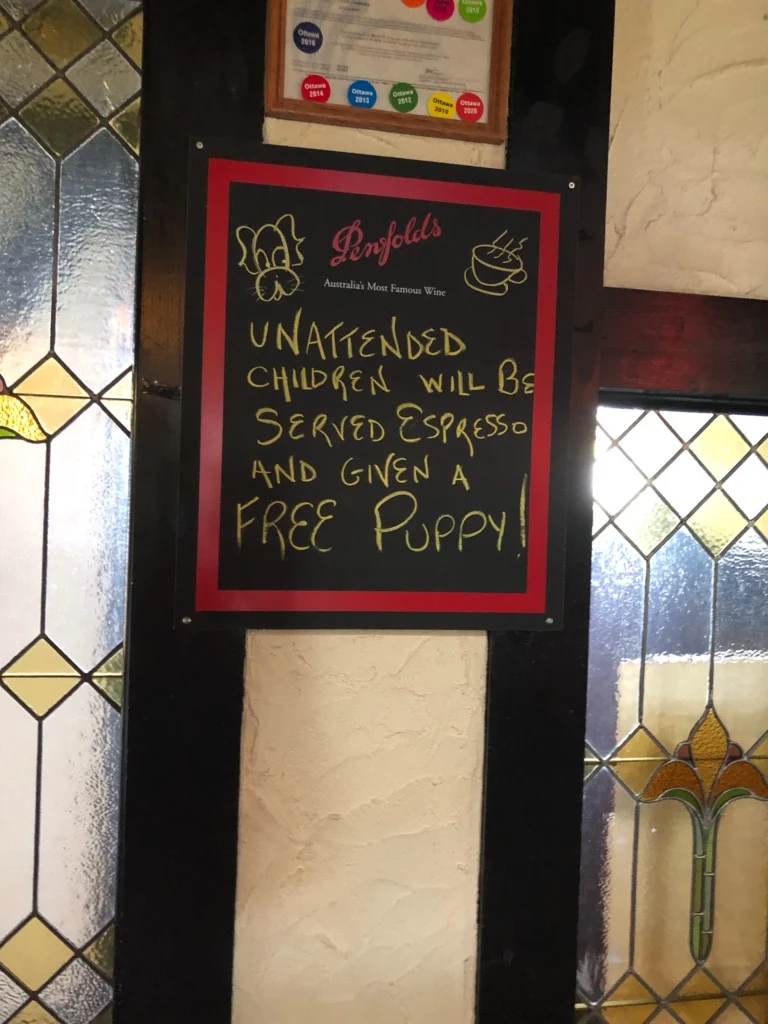 Ottawa 2016
Ottawa 2014
Ottawa 2013
Ottawa 2012
Ottawa
Ottawa
Penfolds
Australia's Most Famous Wine
UNATTENDED
CHILDREN WILL BE
SERVED ESPRESSO
AND GIVEN A
FREE PUPPY!